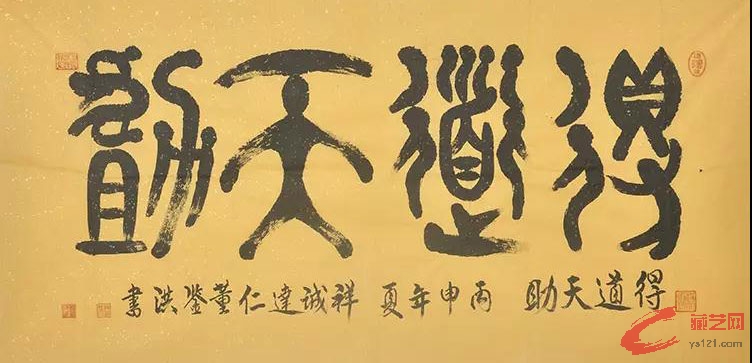 得道天助
得道天助 丙申年夏 祥诚达仁董鉴洪书
藏艺网
ys121.com